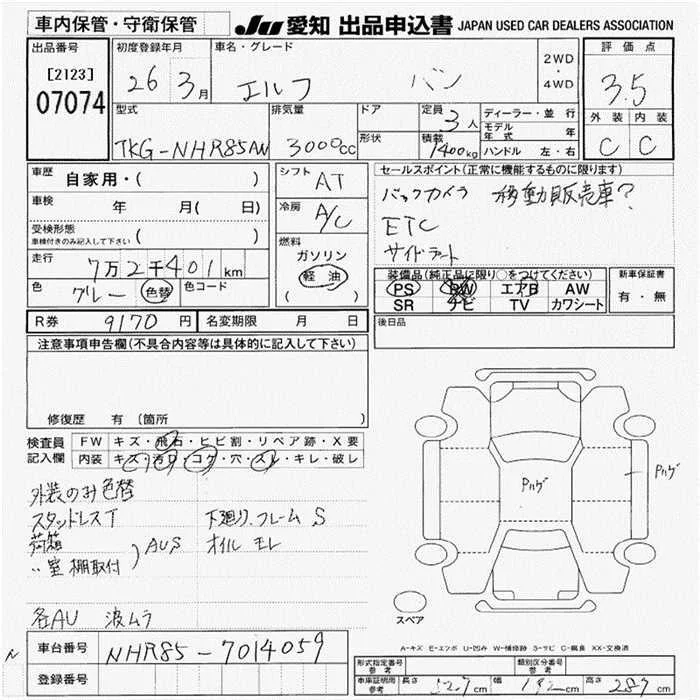 車内保管・守衛保管 JU 愛知 出品申込書 JAPAN USED CAR DEALERS ASSOCIATION
出品番号 初度登録年月 車名・グレード 評価点
[2123] 26 3月 エルフ バン 2WD・4WD 3.5
07074
型式 排気量 ドア 定員 3人 ディーラー・並行 外装 内装
TKG-NHR85AN 3000cc 形状 積載 1400kg モデル年式 年 C C
ハンドル 左・右
車歴 自家用・( ) シフト AT セールスポイント(正常に機能するものに限ります)
車検 年 月( 日) 冷房 A/C バックカメラ 移動販売車?
受検形態 ( ) ETC
車検付きのみ記入して下さい
走行 7万2千401km 燃料 ガソリン 軽油 ( ) サイドゲート
色 グレー 色替 色コード 装備品(純正品に限り○をつけてください) 新車保証書
PS PW エアB AW 有・無
SR ナビ TV カワシート
R券 9170円 名変期限 月 日 後日品
注意事項申告欄(不具合内容等は具体的に記入して下さい)
修復歴 有 (箇所 )
検査員 FW キズ・飛石・ヒビ割・リペア跡・X要
記入欄 内装 キズ・汚れ・コゲ・穴・スレ・キレ・破レ
外装のみ色替
スタッドレスT 下廻り、フレームS
荷箱 AUS オイルモレ
〃室 棚取付
各AU 波ムラ
Pハゲ Pハゲ
スペア
A-キズ E-エクボ U-凹み W-補修跡 S-サビ C-腐食 XX-交換済
車台番号 NHR85-7014059
登録番号
形式指定番号 参考 類別区分番号 参考
車庫証明用 参考 長さ cm 幅 cm 高さ 287cm